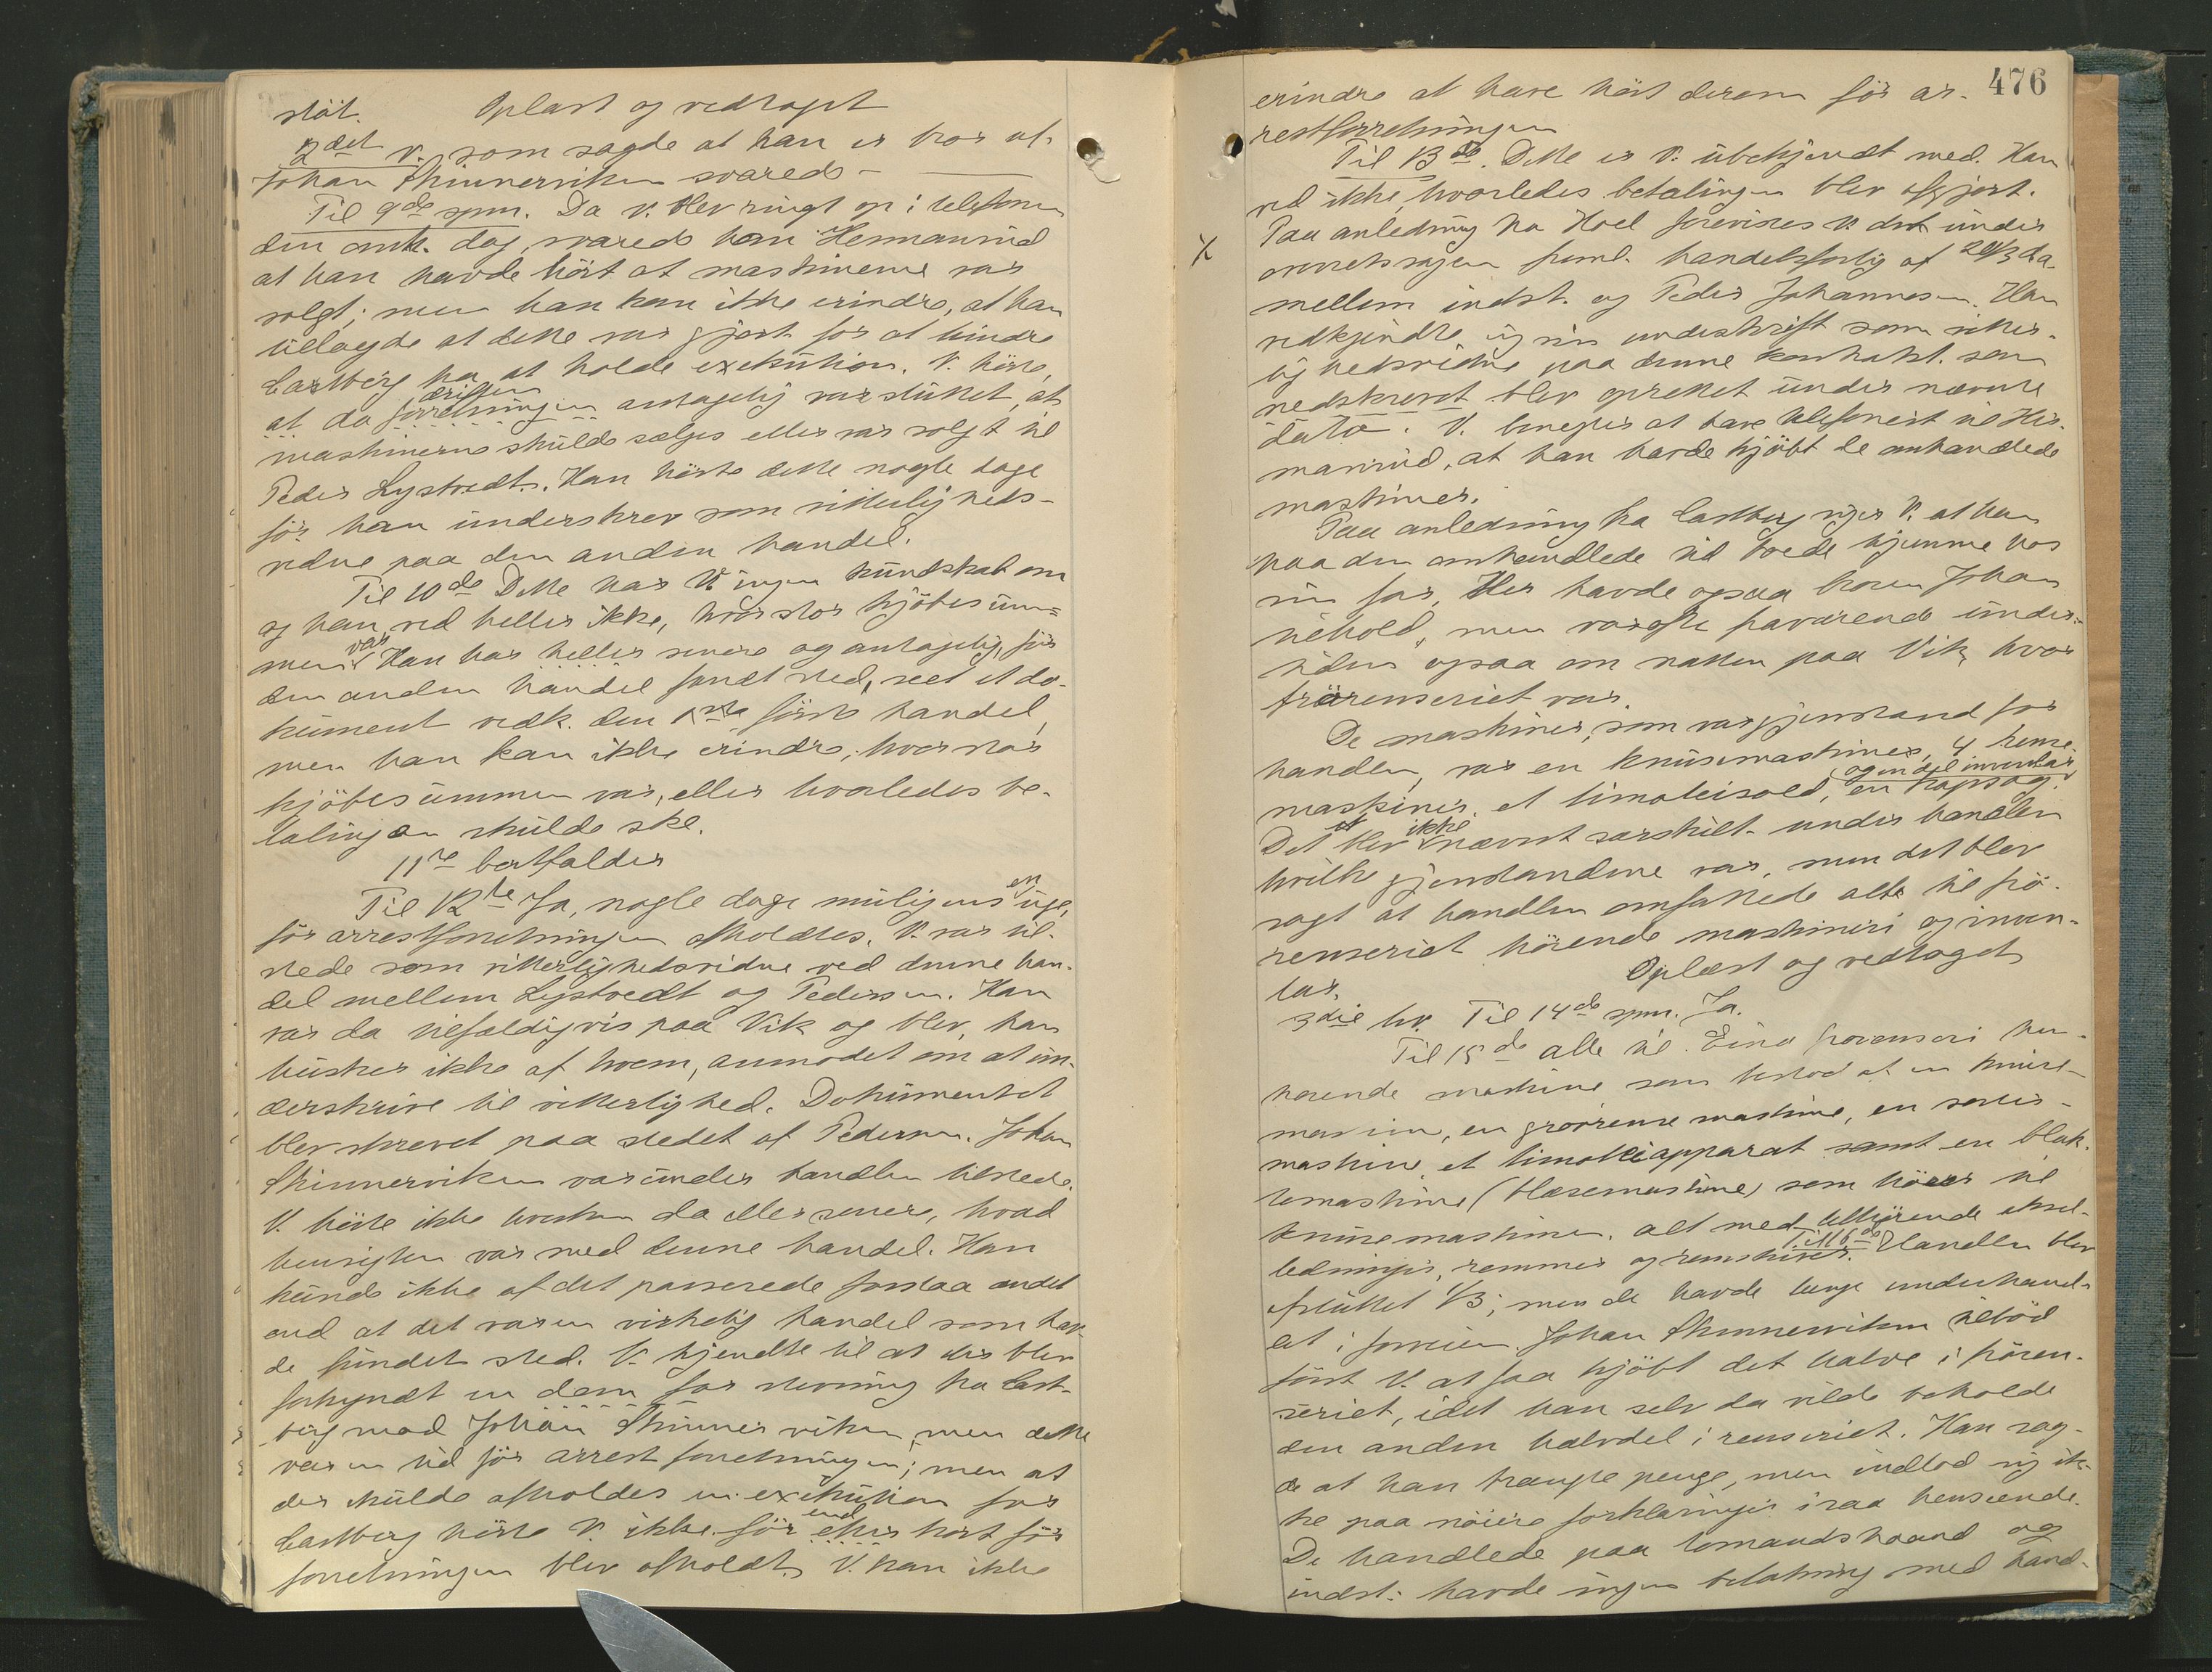 støt. Oplæst og vedtaget
2det v. som sagde at han er bror af
Johan Skinnerviken svarede
Til 9de spm. Da v. blev ringt op i telefonen
den omh. dag, svarede han Hermanrud
at han havde hørt at maskinerne var
solgt; men han kan ikke erindre, at han
tilføyde at dette var gjort for at hindre
Castberg fra at holde exekution. V. hørte,
driften
at da forretningen antagelig var sluttet, at
maskinerne skulde sælges eller var solgt til
Peder Lystvedt. Han hørte dette nogle dage
før han underskrev som vitterligheds-
vidne paa den anden handel.
Til 10de Dette har V. ingen kundskab om
og han ved heller ikke, hvor stor kjøbesum-
men var Han har heller senere og antagelig, før
den anden handel fandt sted, seet et do-
kument vedk. den 1ste første handel,
men han kan ikke erindre, hvor stor
kjøbesummen var, eller hvorledes be-
talingen skulde ske.
11te bortfalder
Til 12te Ja, nogle dage muligens en uge,
før arrestforretningen afholdtes. V. var til-
stede som vitterlighedsvidne ved denne han-
del mellem Lystvedt og Pedersen. Han
var da tilfældigvis paa Vik og blev, han
husker ikke af hvem, anmodet om at un-
derskrive til vitterlighed. Dokumentet
blev skrevet paa stedet af Pedersen. Johan
Skinnerviken var under handlen tilstede.
V. hørte ikke hverken da eller senere, hvad
hensigten var med denne handel. Han
kunde ikke af det passerede forstaa andet
end at det var en virkelig handel som hav-
de fundet sted. V. kjendte til at der blev
forkyndt en dom for stevning fra Cast-
berg mod Johan Skinnerviken, men dette
var en tid før arrestforretningen; men at
der skulde afholdes en exekution for
end
Castberg hørte V. ikke før efter kort før
forretningen blev afholdt. V. kan ikke
476
erindre at have hørt derom før ar-
restforretningen
Til 13de. Dette er V. ubekjendt med. Han
ved ikke, hvorledes betalingen blev afgjort.
x Paa anledning fra Hoel forevises V. det under
arrestsagen freml. handelsforlig af 20/3 d.a.
mellem indst. og Peder Johannesen. Han
vedkjendte sig sin underskrift som vitter-
lighedsvidne paa denne kontrakt som
nedskrevet blev oprettet under nævnte
dato. V. benegter at have telefoneret til Her-
manrud, at han havde kjøbt de omhandlede
maskiner.
Paa anledning fra Castberg siger V. at han
paa den omhandlede tid boede hjemme hos
sin far. Her havde ogsaa broren Johan
tilhold, men var ofte fraværende under-
tiden ogsaa om natten paa Vik, hvor
frørenseriet var.
De maskiner, som var gjenstand for
handlen, var en knusemaskiner, 4 rense-
maskiner, et timoteisold, en kapsag. og en del inventar
Det blev ikke nævnt særskilt under handlen
hvilke gjenstandene var, men det blev
sagt at handlen omfattede alt til frø-
renseriet hørende maskineri og inven-
tar. Oplæst og vedtaget
3die hv. Til 14de spm. Ja.
Til 15de alle til Eina frørenseri hen-
hørende maskine som bestod af en knuse-
maskine, en grovrensemaskine, en sorter-
maskine, et timoteiapparat samt en blak-
temaskine (blæsemaskine) som hører til
knusemaskinen, alt med tilhørende aksel-
ledninger, remmer og remskiver. Til 16de Handlen blev
afsluttet 1/3; men de havde længe underhand-
let i forveien. Johan Skinnerviken tilbød
først V. at faa kjøbt det halve i frøren-
seriet, idet han selv da vilde beholde
den anden halvdel i renseriet. Han sag-
de at han trængte penge, men indlod sig ik-
ke paa nøiere forklaringer i saa henseende.
De handlede paa tomandshaand og
indst. havde ingen befatning med hand-